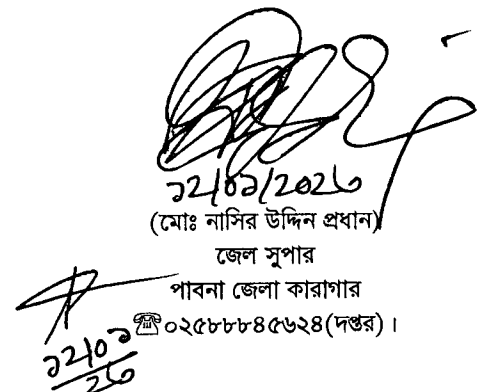 ১২/০১/২০২৬
(মোঃ নাসির উদ্দিন প্রধান)
জেল সুপার
পাবনা জেলা কারাগার
☎০২৫৮৮৮৪৫৬২৪(দপ্তর)।
১২/০১
২৬